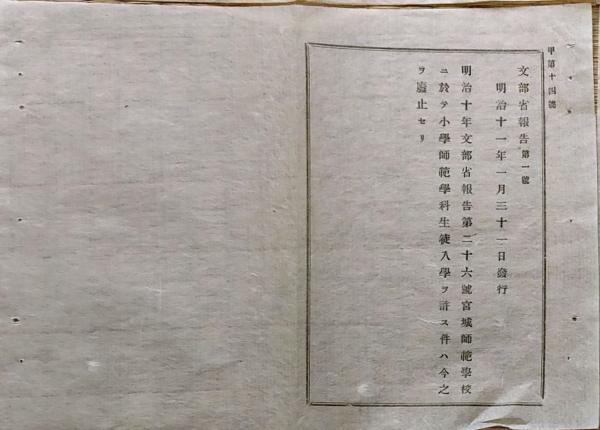 甲第十四號
文部省報告第一號
明治十一年一月三十一日發行
明治十年文部省報告第二十六號宮城師範學校
ニ於テ小學師範學科生徒入學ヲ許ス件ハ今之
ヲ廢止セリ